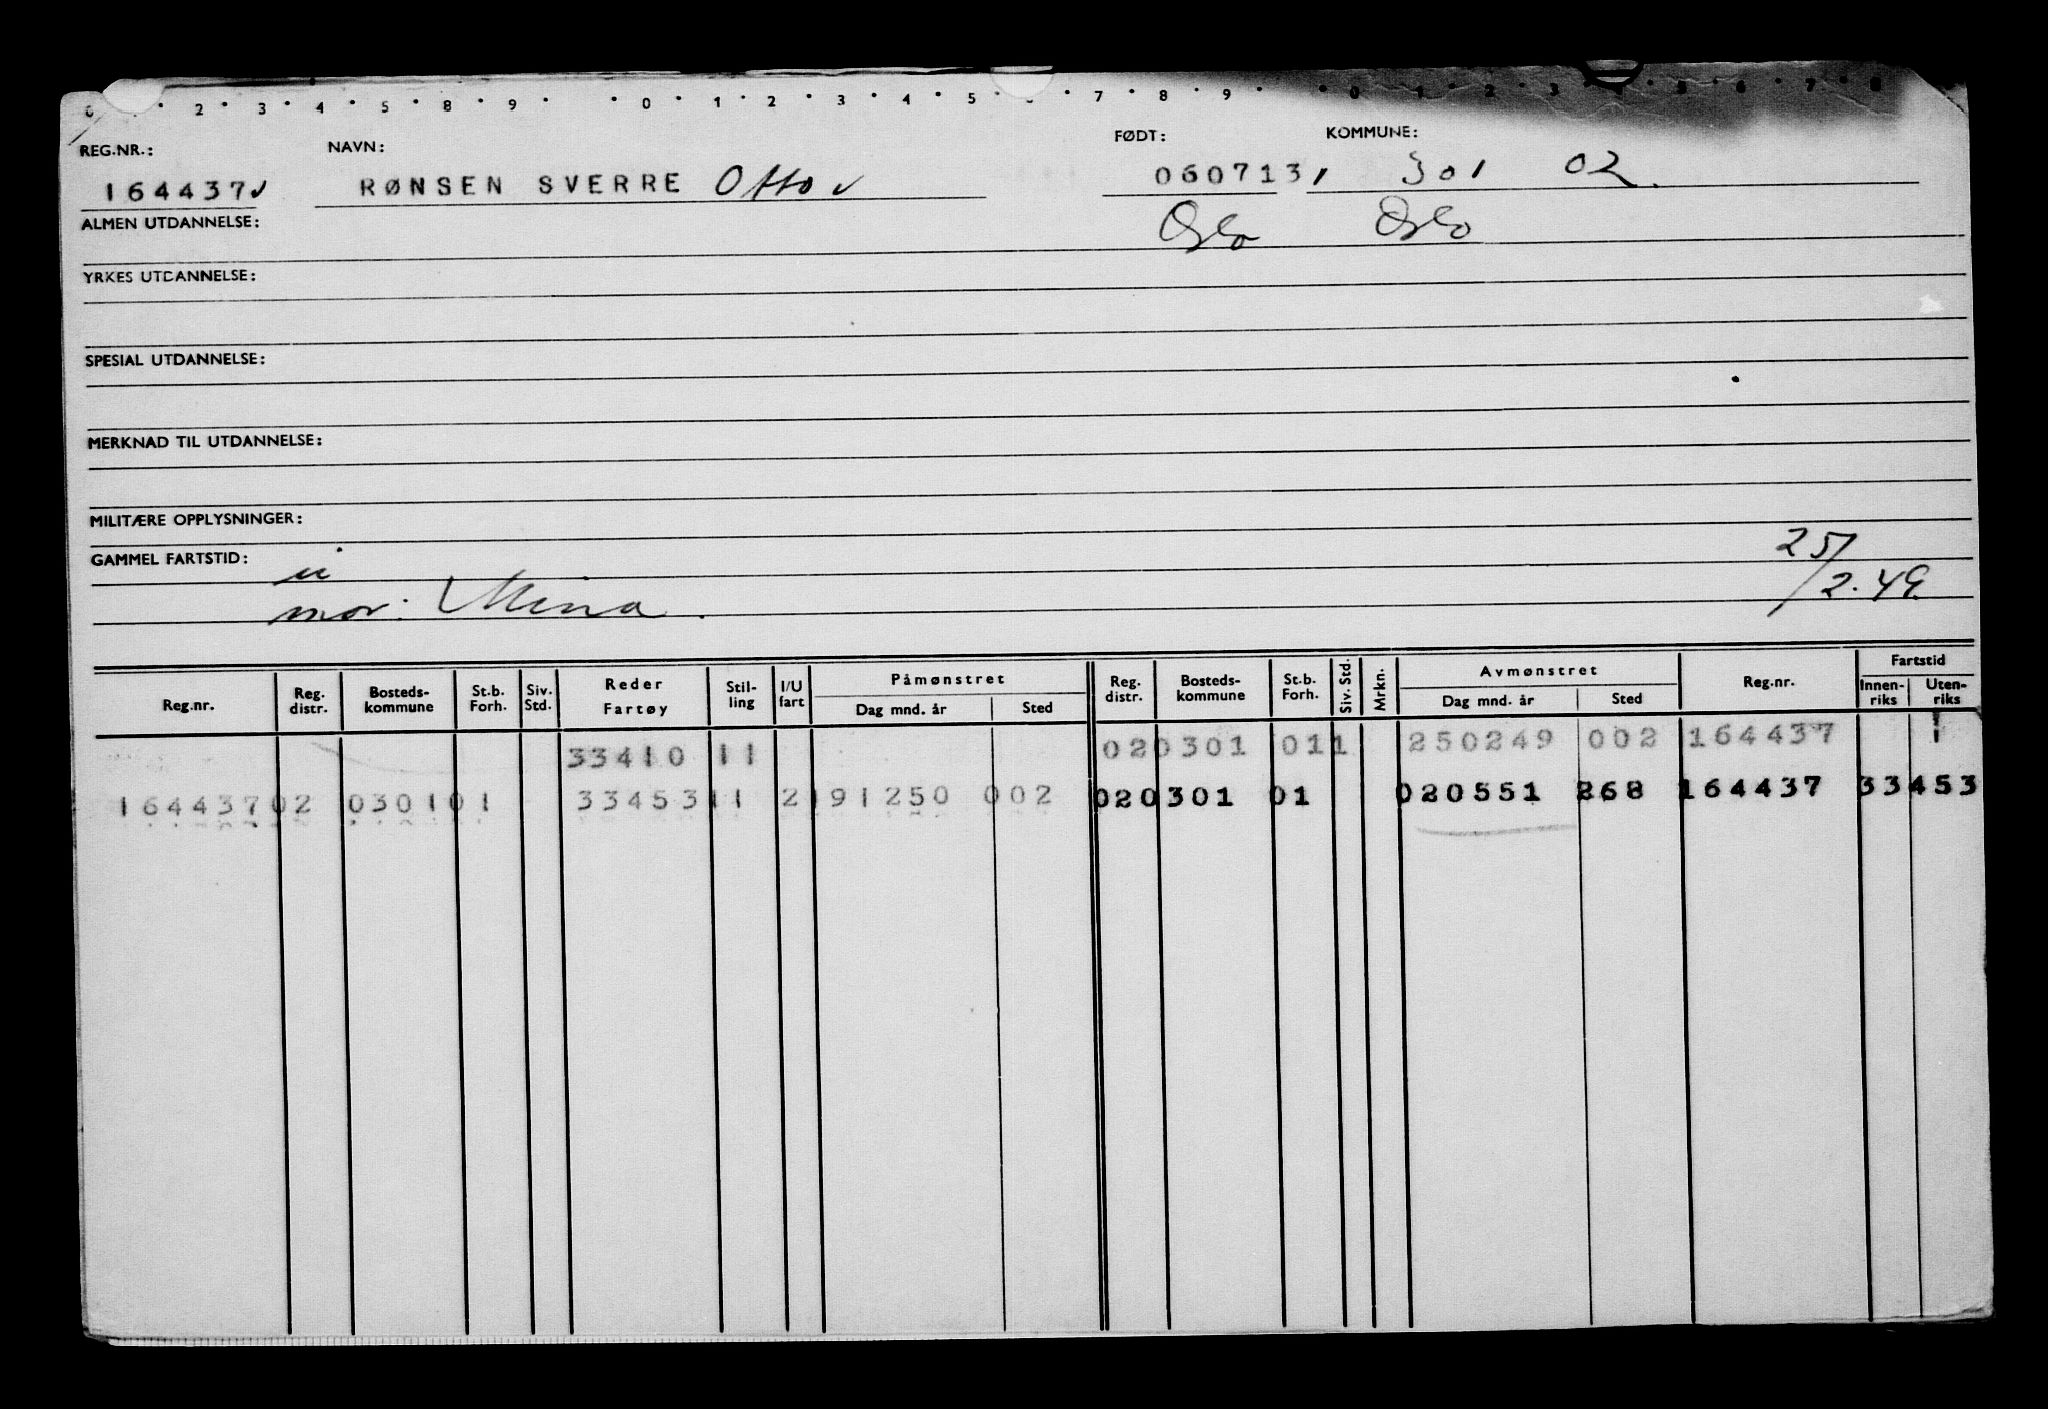 0 · 2 · 3 · 4 · 5 · 8 · 9 · · 0 · 1 · 2 · 3 · 4 · 5 · · 7 · 8 · 9 · · 0 · 1 · 2 · 3 · · 5 · 6 · 7 · 8
REG.NR.: NAVN: FØDT: KOMMUNE:
164437 ✓ RØNSEN SVERRE Otto ✓ 060713 301 02.
ALMEN UTDANNELSE: Oslo Oslo
YRKES UTDANNELSE:
SPESIAL UTDANNELSE:
MERKNAD TIL UTDANNELSE:
MILITÆRE OPPLYSNINGER:
GAMMEL FARTSTID: 25/2.49
mor: Mina.
Reg.nr. Reg. distr. Bosteds-kommune St.b. Forh. Siv. Std. Reder Fartøy Stil-ling I/U fart Påmønstret Dag mnd. år Sted Reg. distr. Bosteds-kommune St.b. Forh. Siv. Std. Mrkn. Avmønstret Dag mnd. år Sted Reg.nr. Fartstid Innen-riks Uten-riks
33410 11 020301 011 250249 002 164437 1
16443702 030101 3345311 2191250 002 020301 01 020551 268 164437 33453